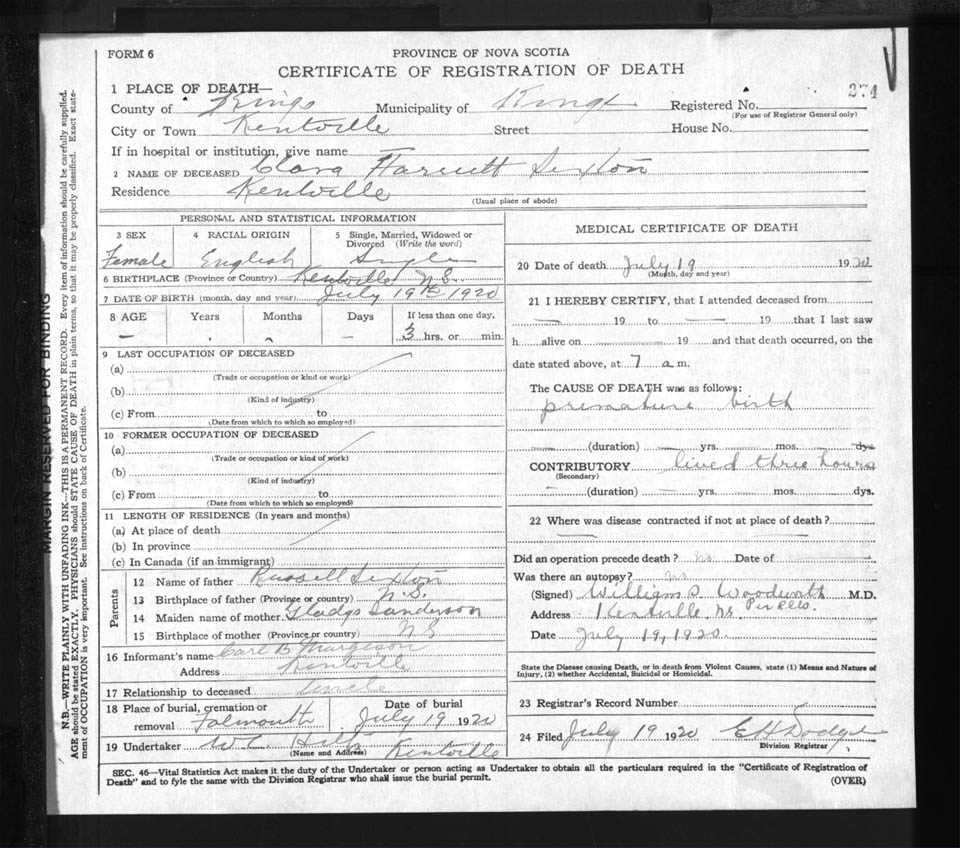 FORM 6
PROVINCE OF NOVA SCOTIA
CERTIFICATE OF REGISTRATION OF DEATH
1 PLACE OF DEATH—
County of Kings Municipality of Kings Registered No. 274
(For use of Registrar General only)
City or Town Kentville Street House No.
If in hospital or institution, give name —
2 NAME OF DECEASED Clara Harriett Sexton
Residence Kentville
(Usual place of abode)
PERSONAL AND STATISTICAL INFORMATION
3 SEX 4 RACIAL ORIGIN 5 Single, Married, Widowed or Divorced (Write the word)
Female English Single
6 BIRTHPLACE (Province or Country) Kentville N.S.
7 DATE OF BIRTH (month, day and year) July 19th 1920
8 AGE Years Months Days If less than one day,
— — 3 hrs. or min.
9 LAST OCCUPATION OF DECEASED
(a)
(Trade or occupation or kind or work)
(b)
(Kind of industry)
(c) From to
(Date from which to which so employed)
10 FORMER OCCUPATION OF DECEASED
(a)
(Trade or occupation or kind of work)
(b)
(Kind of industry)
(c) From to
(Date from which to which so employed)
11 LENGTH OF RESIDENCE (In years and months)
(a) At place of death
(b) In province
(c) In Canada (if an immigrant)
Parents
12 Name of father Russell Sexton
13 Birthplace of father (Province or country) N.S.
14 Maiden name of mother Gladys Sanderson
15 Birthplace of mother (Province or country) NS
16 Informant's name Carl B Margeson
Address Kentville
17 Relationship to deceased Uncle
18 Place of burial, cremation or removal Falmouth Date of burial July 19 1920
19 Undertaker W.C. Kentville
(Name and Address)
MEDICAL CERTIFICATE OF DEATH
20 Date of death July 19 1920
(Month, day and year)
21 I HEREBY CERTIFY, that I attended deceased from
— 19 to — 19 that I last saw
h alive on 19 and that death occurred, on the
date stated above, at 7 a m.
The CAUSE OF DEATH was as follows:
premature birth
(duration) yrs. mos. dys.
CONTRIBUTORY lived three hours
(Secondary)
(duration) yrs. mos. dys.
22 Where was disease contracted if not at place of death?
Did an operation precede death? no Date of
Was there an autopsy? no
(Signed) William S Woodworth M.D.
Address Kentville, NS
Date July 19, 1920
State the Disease causing Death, or in death from Violent Causes, state (1) Means and Nature of
Injury, (2) whether Accidental, Suicidal or Homicidal.
23 Registrar's Record Number
24 Filed July 19 1920 E H Dodge
Division Registrar
SEC. 46—Vital Statistics Act makes it the duty of the Undertaker or person acting as Undertaker to obtain all the particulars required in the "Certificate of Registration of
Death" and to fyle the same with the Division Registrar who shall issue the burial permit.
(OVER)
MARGIN RESERVED FOR BINDING
N.B.—WRITE PLAINLY WITH UNFADING INK—THIS IS A PERMANENT RECORD. Every item of information should be carefully supplied.
AGE should be stated EXACTLY. PHYSICIANS should STATE CAUSE OF DEATH in plain terms, so that it may be properly classified. Exact state-
ment of OCCUPATION is very important. See instructions on back of Certificate.